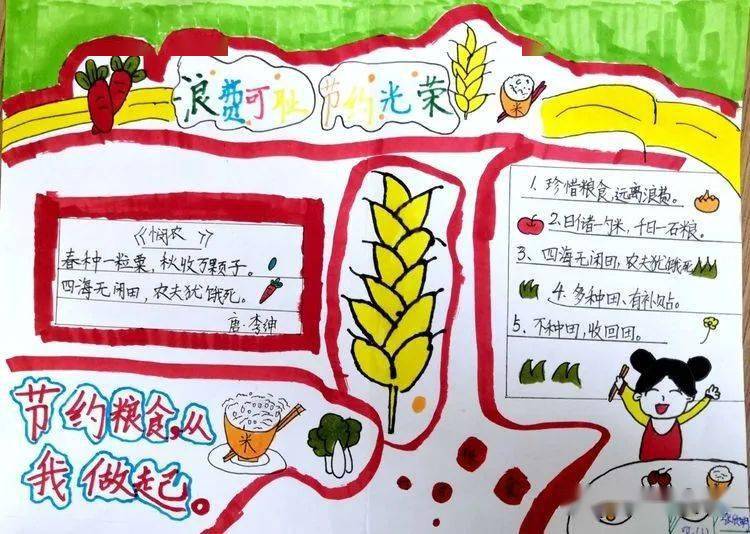 浪费可耻 节约光荣
《悯农》
春种一粒粟，秋收万颗子。
四海无闲田，农夫犹饿死。
唐·李绅
1、珍惜粮食，远离浪费。
2、日储一勺米，千日一石粮。
3、四海无闲田，农夫犹饿死
4、多种田、有补贴。
5、不种田，收回田。
节约粮食，从
我做起。
米
米